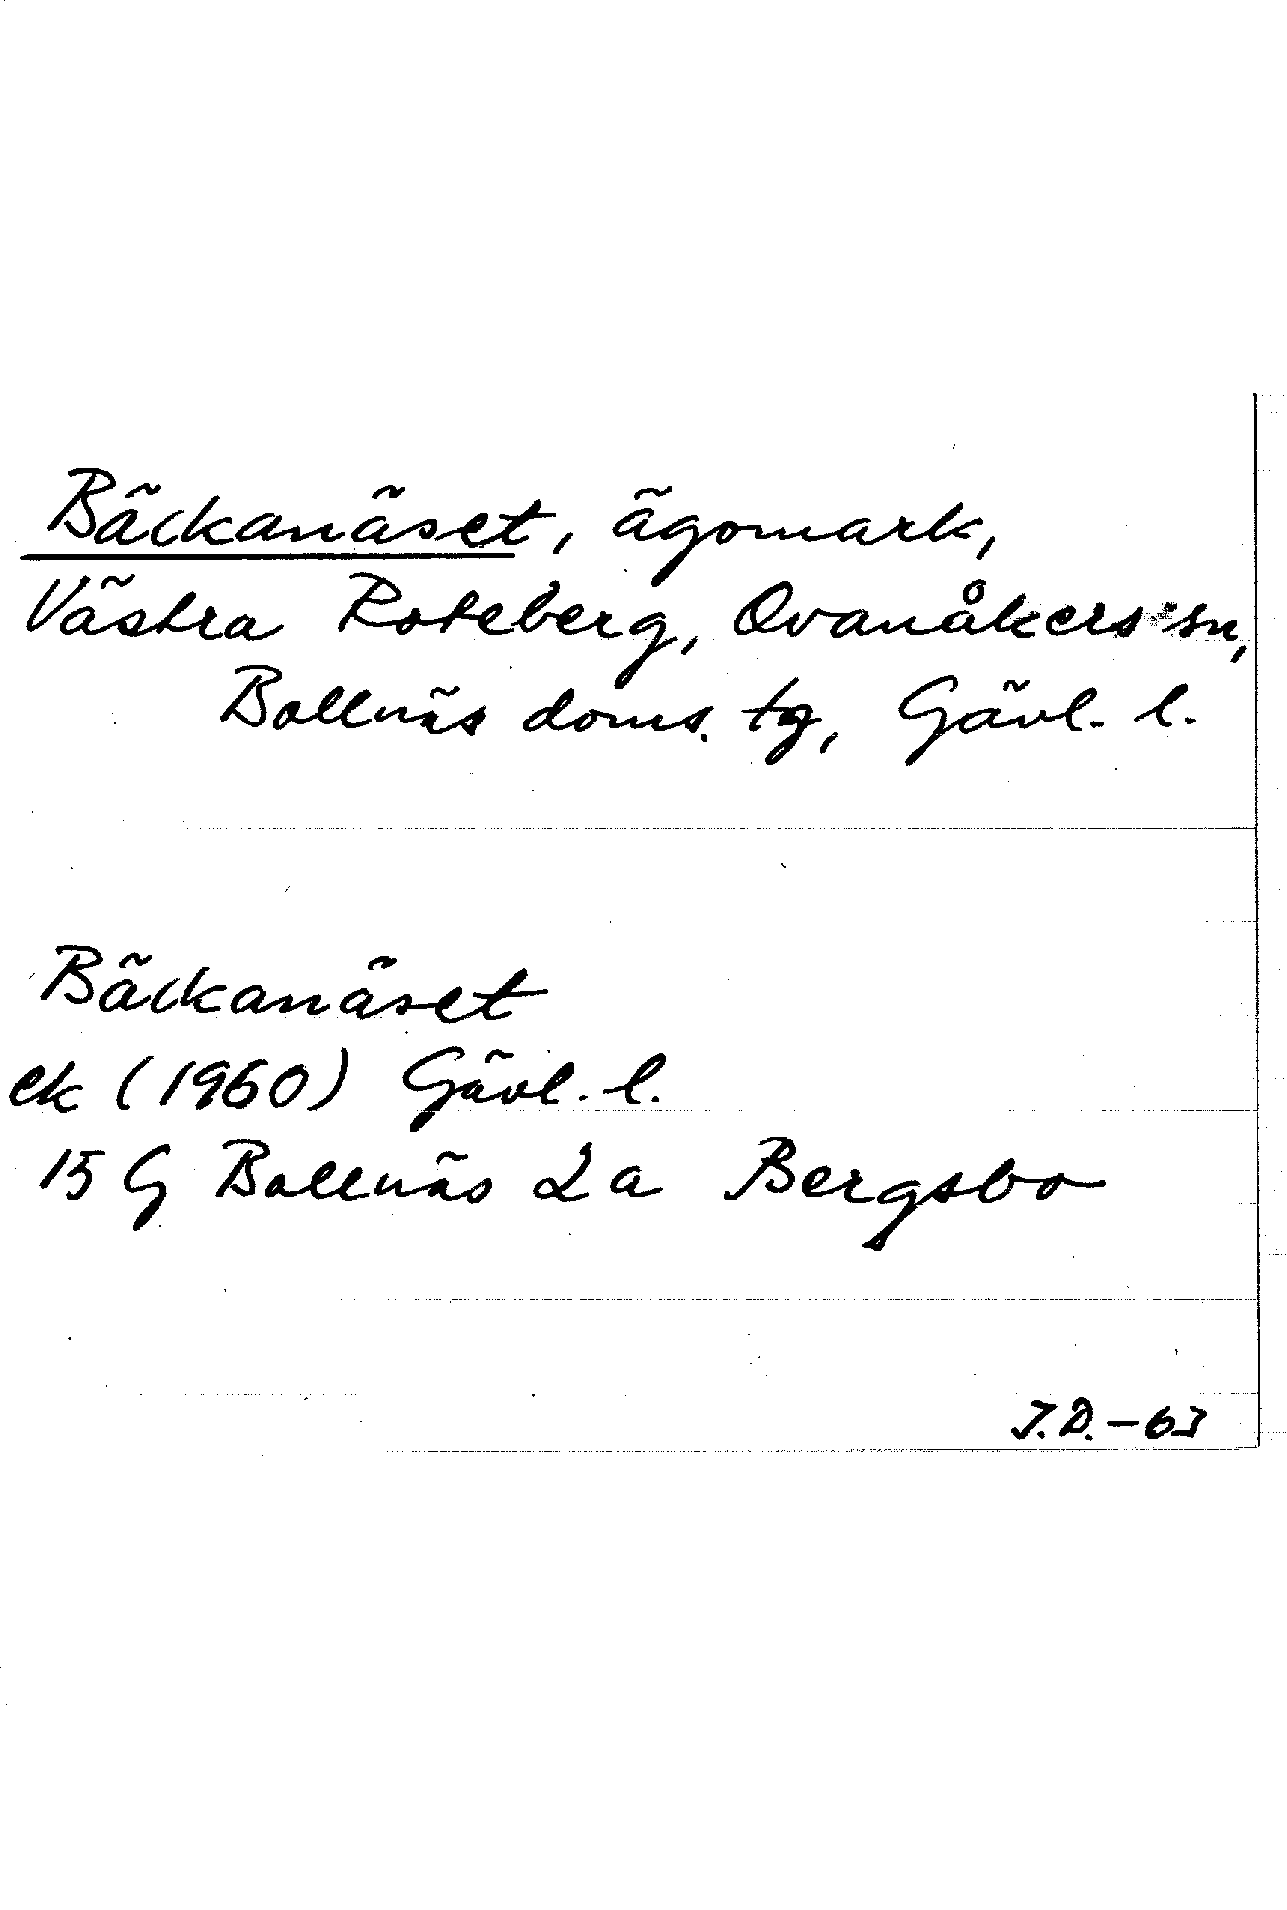 Bäckanäset, ägomark,
Västra Roteberg, Ovanåkers sn,
Bollnäs doms. tg, Gävl. l.
Bäckanäset
ek (1960) Gävl. l.
15 G Bollnäs 2 a Bergsbo
J.D. - 63